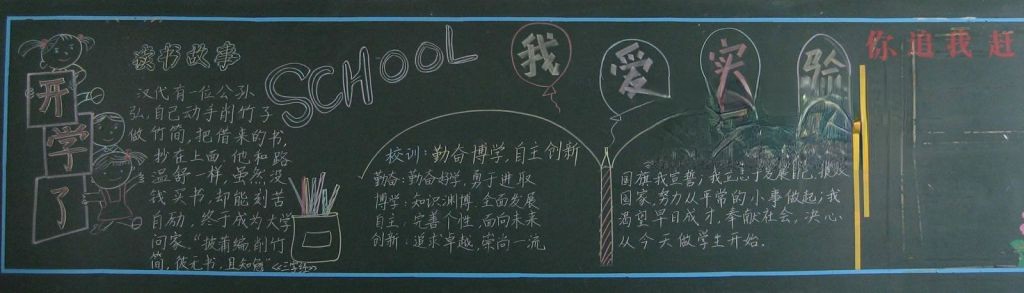 开学了
读书故事
汉代有一位公孙
弘,自己动手削竹子
做竹简,把借来的书,
抄在上面,他和路
温舒一样,虽然没
钱买书,却能刻苦
自励,终于成为大学
问家。“披蒲编,削竹
简,彼无书,且知勉”《三字经》
SCHOOL
我爱实验
校训:勤奋博学,自主创新
勤奋:勤奋好学,勇于进取
博学:知识渊博,全面发展
自主:完善个性,面向未来
创新:追求卓越,崇尚一流
国旗我宣誓,我立志于发展自己,报效
国家,努力从平常的小事做起;我
渴望早日成才,奉献社会,决心
从今天做学生开始.
你追我赶